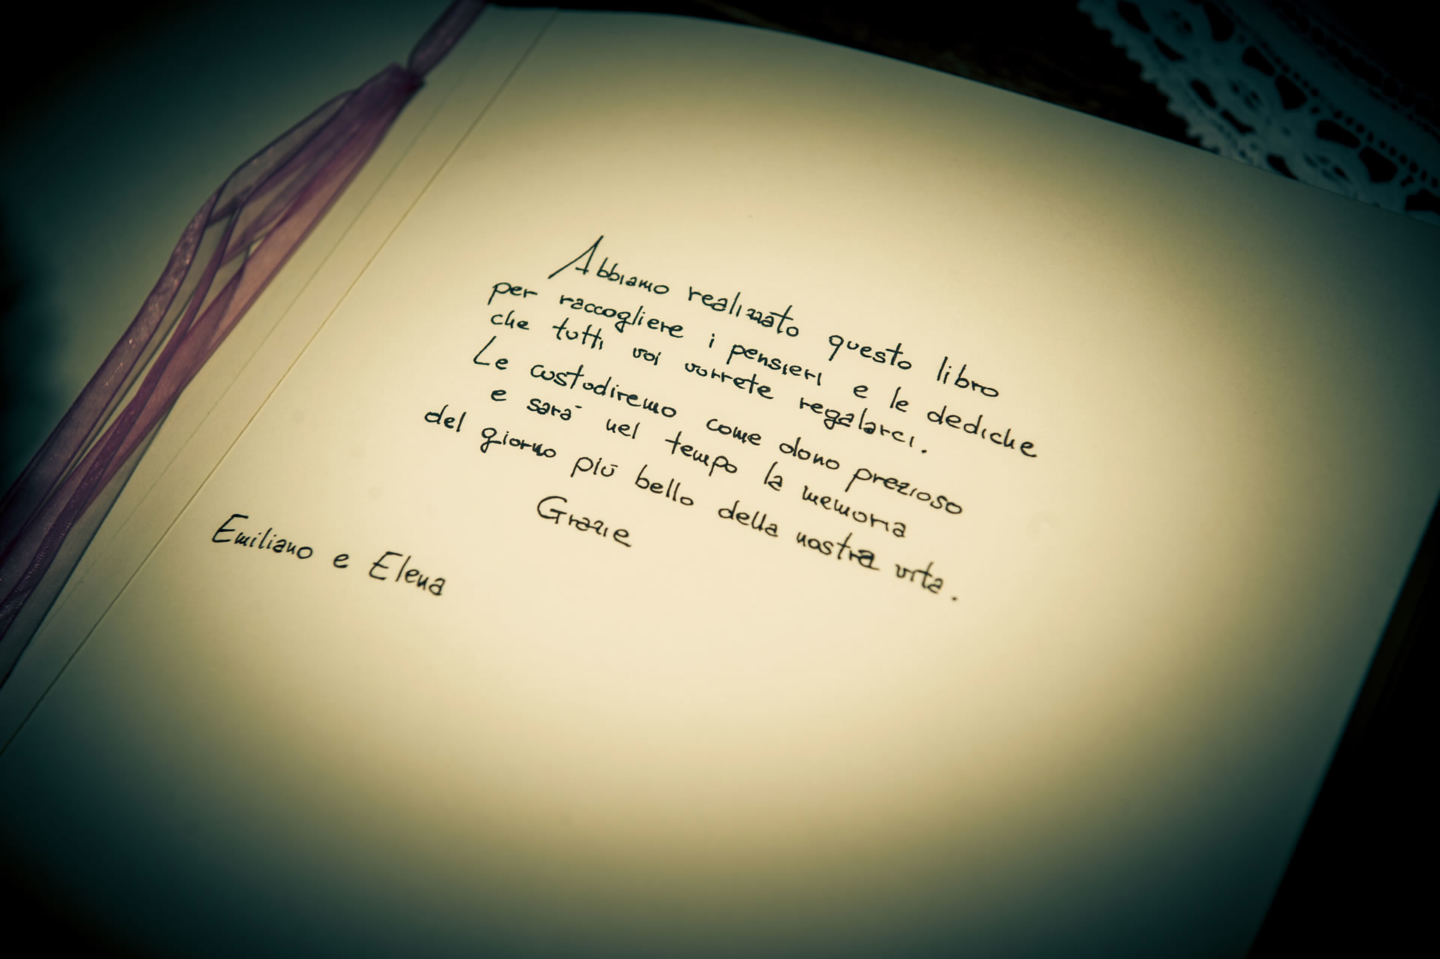 Abbiamo realizzato questo libro
per raccogliere i pensieri e le dediche
che tutti voi vorrete regalarci.
Le custodiremo come dono prezioso
e sarà nel tempo la memoria
del giorno più bello della nostra vita.
Grazie
Emiliano e Elena